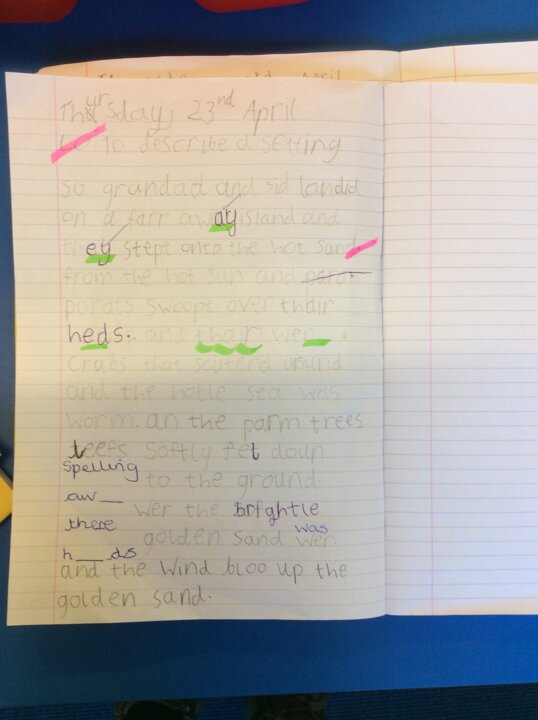 Thursday, 23rd April
LC To describe a setting.
So grandad and sid landid
on a farr away island and
they stept onto the hot sand
from the hot sun and para
parots swoopt over thair
heds. and thair wer
crabs that scuterd around
and the hotle sea was
worm. an the parm trees
leefs softly fel doun
spelling to the ground
aw__ wer the brightle
there golden sand wer was
h__ds
and the wind bloo up the
golden sand.